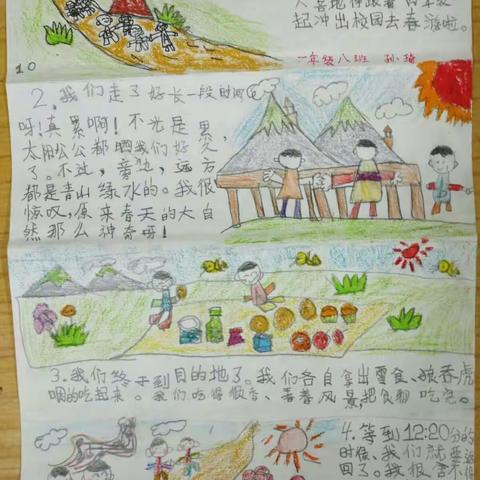 起冲出校园去春游啦。
一年级八班 孙琦
10
2.我们走了好长一段时间
呀!真累啊!不光是累,
太阳公公都晒我们好久
了。不过,旁边,远方
都是青山绿水的。我很
惊叹,原来春天的大自
然那么神奇呀!
3.我们终于到目的地了。我们各自拿出零食、狼吞虎
咽的吃起来。我们吃得很香、看着风景,把食物吃完。
4.等到12:20分的
时候、我们就要返
回了。我很舍不得